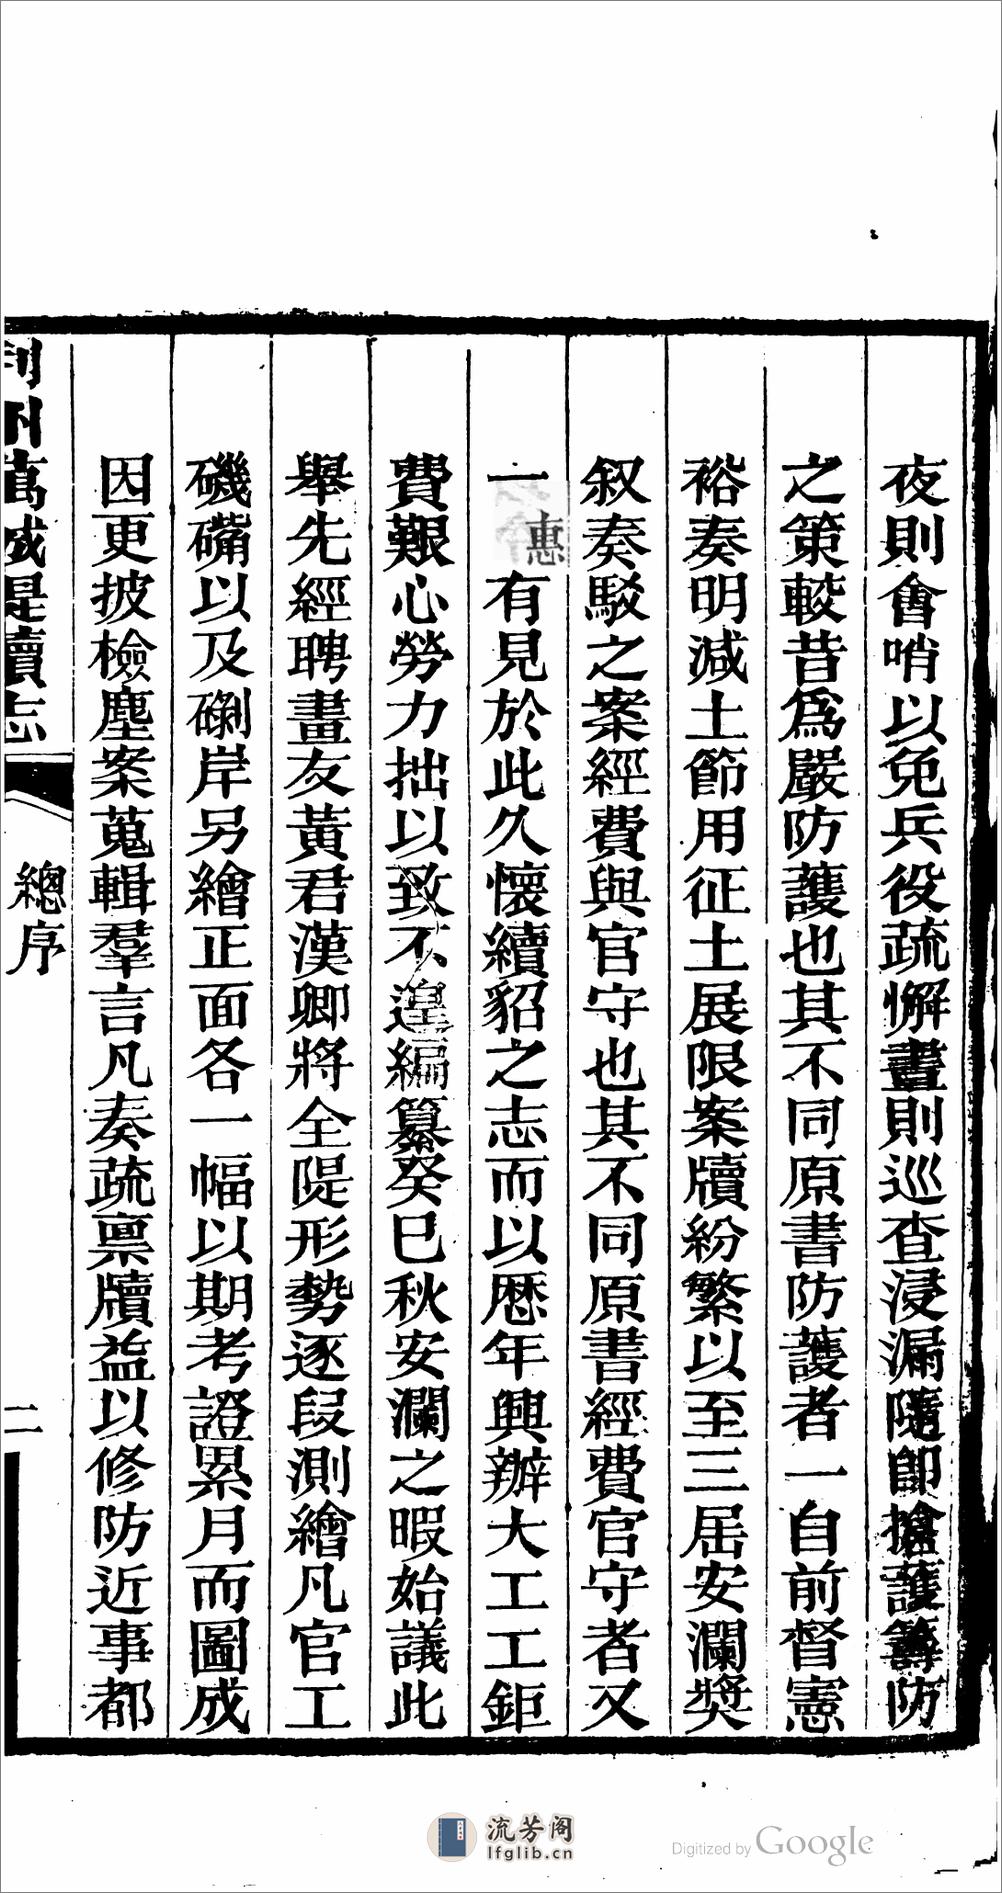 夜則會哨以免兵役疏懈晝則巡查浸漏隨即搶護籌防
之策較昔為嚴防護也其不同原書防護者一自前督憲
裕奏明減土節用征土展限案牘紛繁以至三屆安瀾獎
叙奏駁之案經費與官守也其不同原書經費官守者又
一惠有見於此久懷續貂之志而以歷年興辦大工工鉅
費艱心勞力拙以致不遑編纂癸巳秋安瀾之暇始議此
舉先經聘畫友黃君漢卿將全隄形勢逐段測繪凡官工
磯嘴以及𥔲岸另繪正面各一幅以期考證累月而圖成
因更披檢塵案蒐輯羣言凡奏疏稟牘益以修防近事都
荊州萬城堤續志
總序
二
流芳阁
lfglib.cn
Digitized by Google